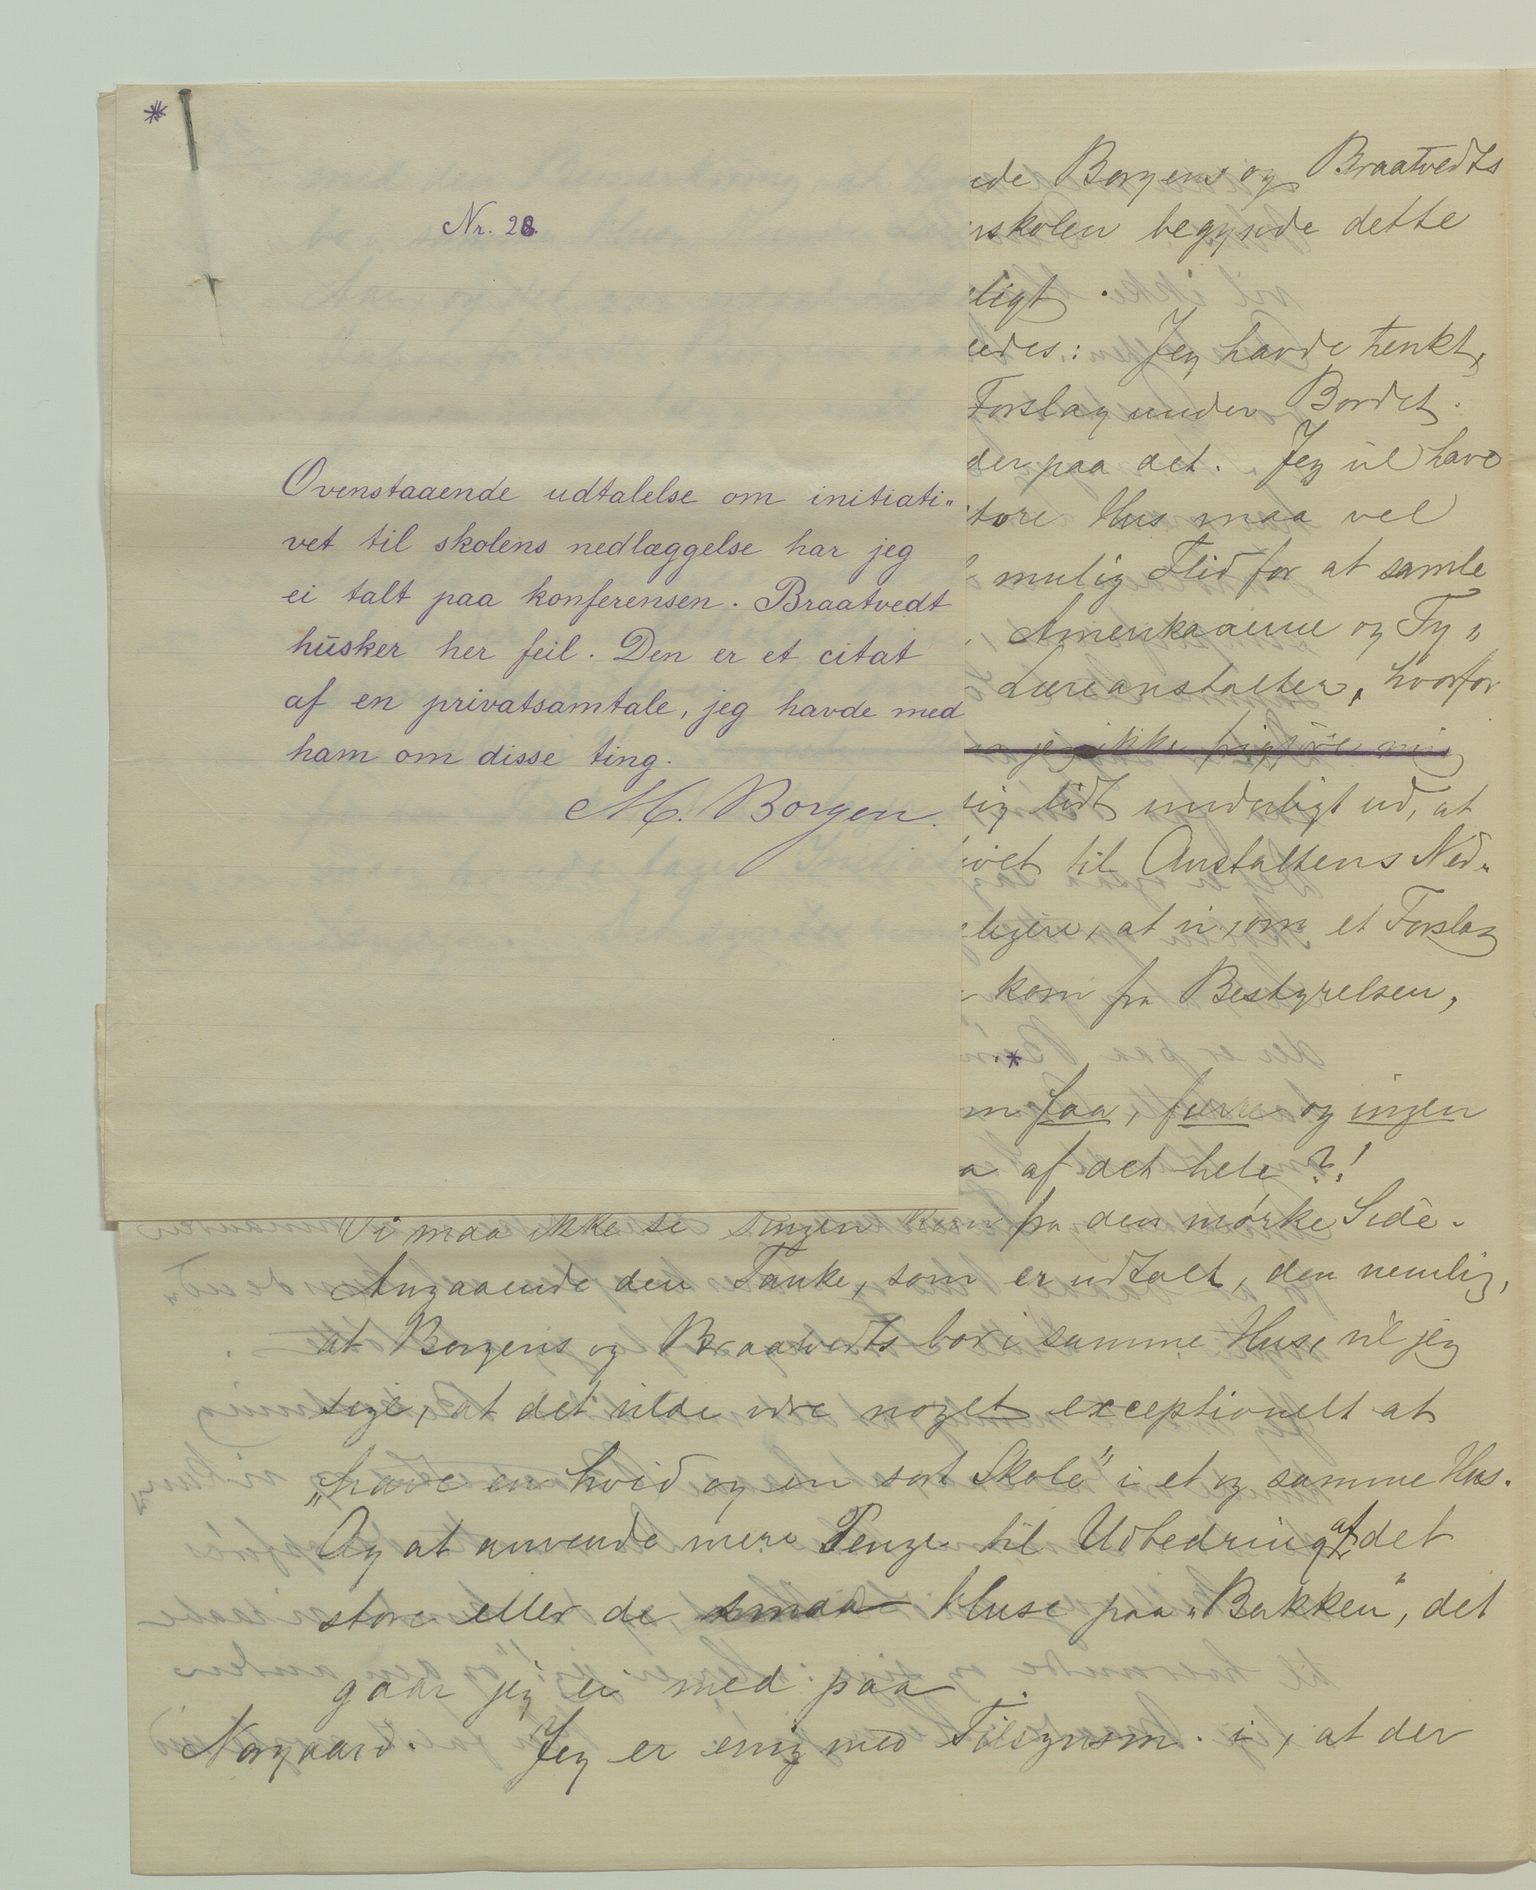 *
Nr. 28.
Ovenstaaende udtalelse om initiati„
vet til skolens nedlæggelse har jeg
ei talt paa konferensen. Braatvedt
husker her feil. Den er et citat
af en privatsamtale, jeg havde med
ham om disse ting.
M. Borgen.
ede Borgens og Braatvedts
skolen begynde dette
ligt.
edes: Jeg havde tænkt,
Forslag under Bordet.
der paa det. Jeg vil have
store Hus maa vel
mulig Flid for at samle
Amerikaanene og Ty„
Læreanstalter, hvorfor
jeg ikke frigjøre mig
sig lidt underligt ud, at
ivet til Anstaltens Ned„
ligere, at vi som et Forslag
kom fra Bestyrelsen,
*
m faa, færre og ingen
a af det hele?!
Vi maa ikke se Tingen kun fra den mørke Side.
Angaaende den Tanke, som er udtalt, den nemlig,
at Borgens og Braatvedts bor i samme Hus, vil jeg
sige, at det vilde være noget exceptionelt at
„have en hvid og en sort Skole" i et og samme Hus.
Og at anvende mere Penge til Udbedring af det
store eller de smaa Huse paa „Bakken", det
gaar jeg ei med paa.
Norgaard. Jeg er enig med Tilsynsm. i, at der